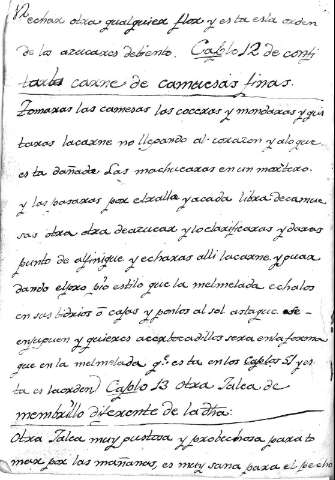 Y echar otra qualquier flor y esta es la orden
de los azucares de biento. Capolo 12 de confi
tarlos carne de camuesas finas.
Tomaras las camesas las coceras y mondaras y qui
taras lacarne no llegando al corazon y aloque
esta dañada Las machucaras en un mortero.
y las pasaras por el rallo y acada libra decamue
sas otra otra deazucar y loclarificaras y daras
punto de alfinique y echaras alli lacarne y guar
dando el pro pio estilo que la melmelada echalos
en sus bidrios o cajas y ponlos al sol asta que se
enjuguen y quieres acer bocadillos sera en la forma
que en la melmelada qe. esta en los Capolos 51 y es
ta es la orden) Capolo 13 Otra Jalea de
membrillo diferente de la dha.
Otra Jalea muy gustosa y probechosa para to
mar por las mañanas, es muy sana para el pecho